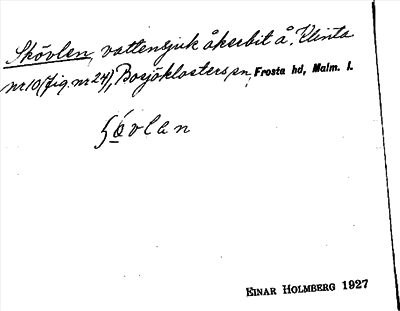 Skövlen, vattensjuk åkerbit å Klinta
nr 10 (fig. nr 24), Bosjöklosters sn, Frosta hd, Malm. l.
övlan
EINAR HOLMBERG 1927